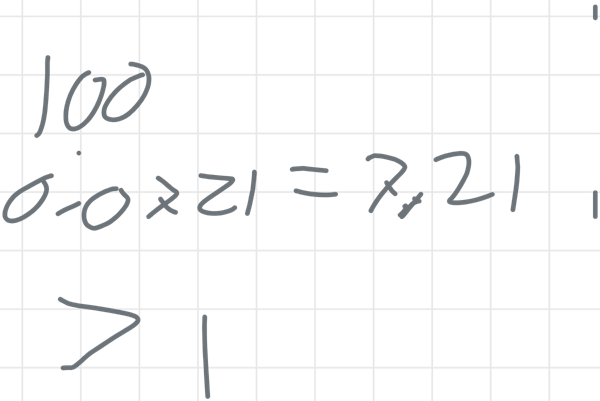 100
0.0721=7.21
>1